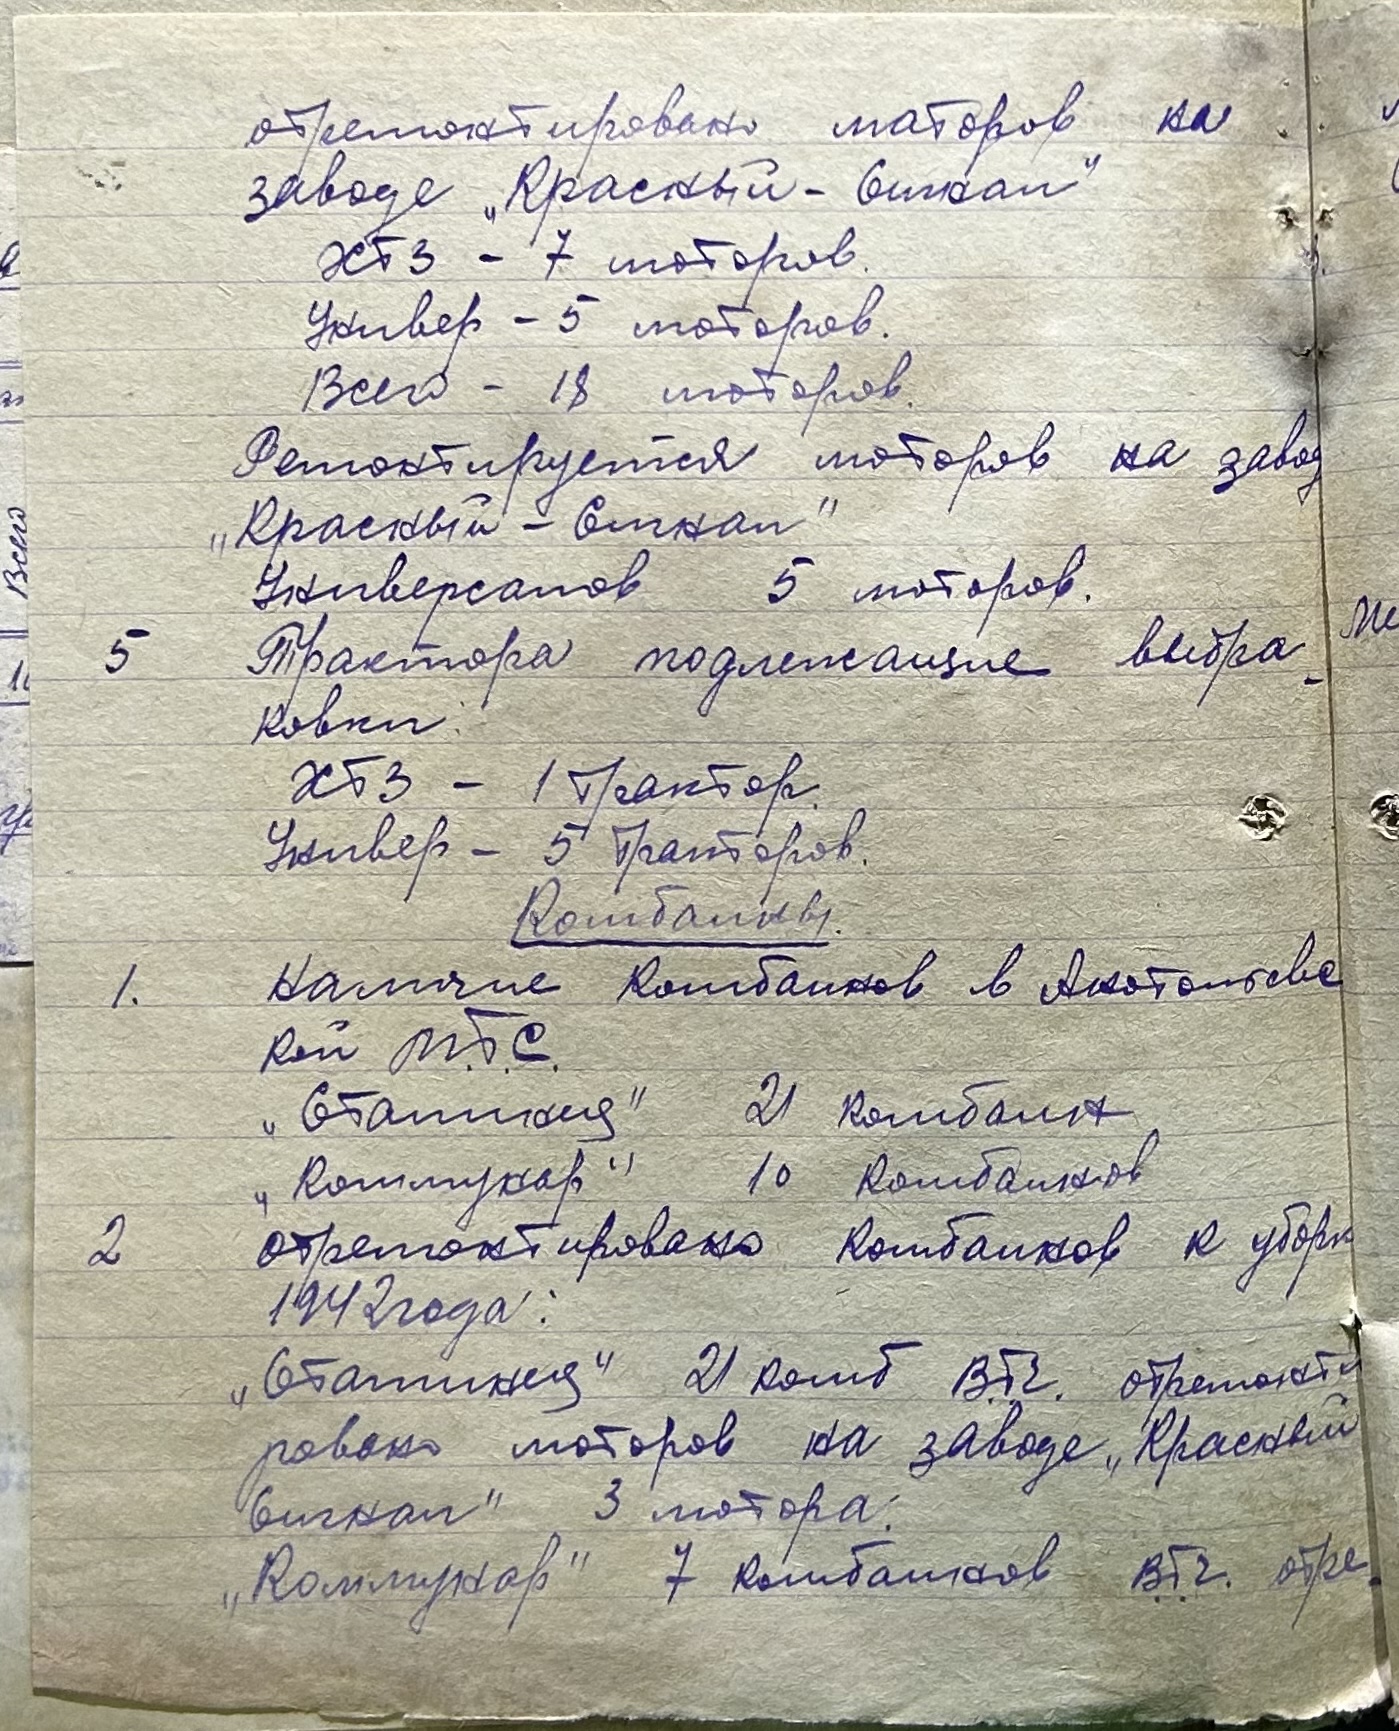 отремонтировано маторов на
заводе „Красный - Сигнал"
ХТЗ - 7 моторов.
Универ - 5 моторов.
Всего - 18 моторов.
Ремонтируется моторов на завод
„Красный - Сигнал"
Универсалов 5 моторов.
5 Трактора подлежащие выбра-
ковки:
ХТЗ - 1 трактор.
Универ - 5 тракторов.
Комбайны.
1. Наличие комбайнов в Анатольевс
кой М.Т.С.
„Сталинец" 21 комбайн
„Коммунар" 10 комбайнов
2 отремонтировано комбайнов к уборк
1942 года:
„Сталинец" 21 комб В.Т.Ч. отремонти
ровано моторов на заводе „Красный
Сигнал" 3 мотора.
„Коммунар" 7 комбайнов В.Т.Ч. отре-
Всего